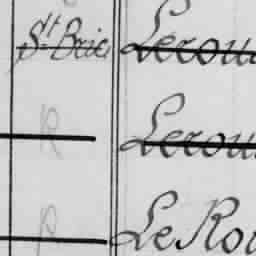 St Briec Lerou
R Lerou
P Le Rou